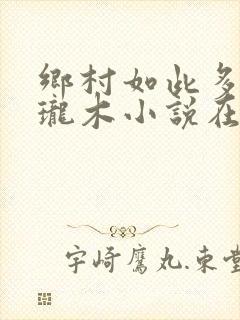 鄉村如此多
瓏木小說在
宇崎鷹丸.東堂